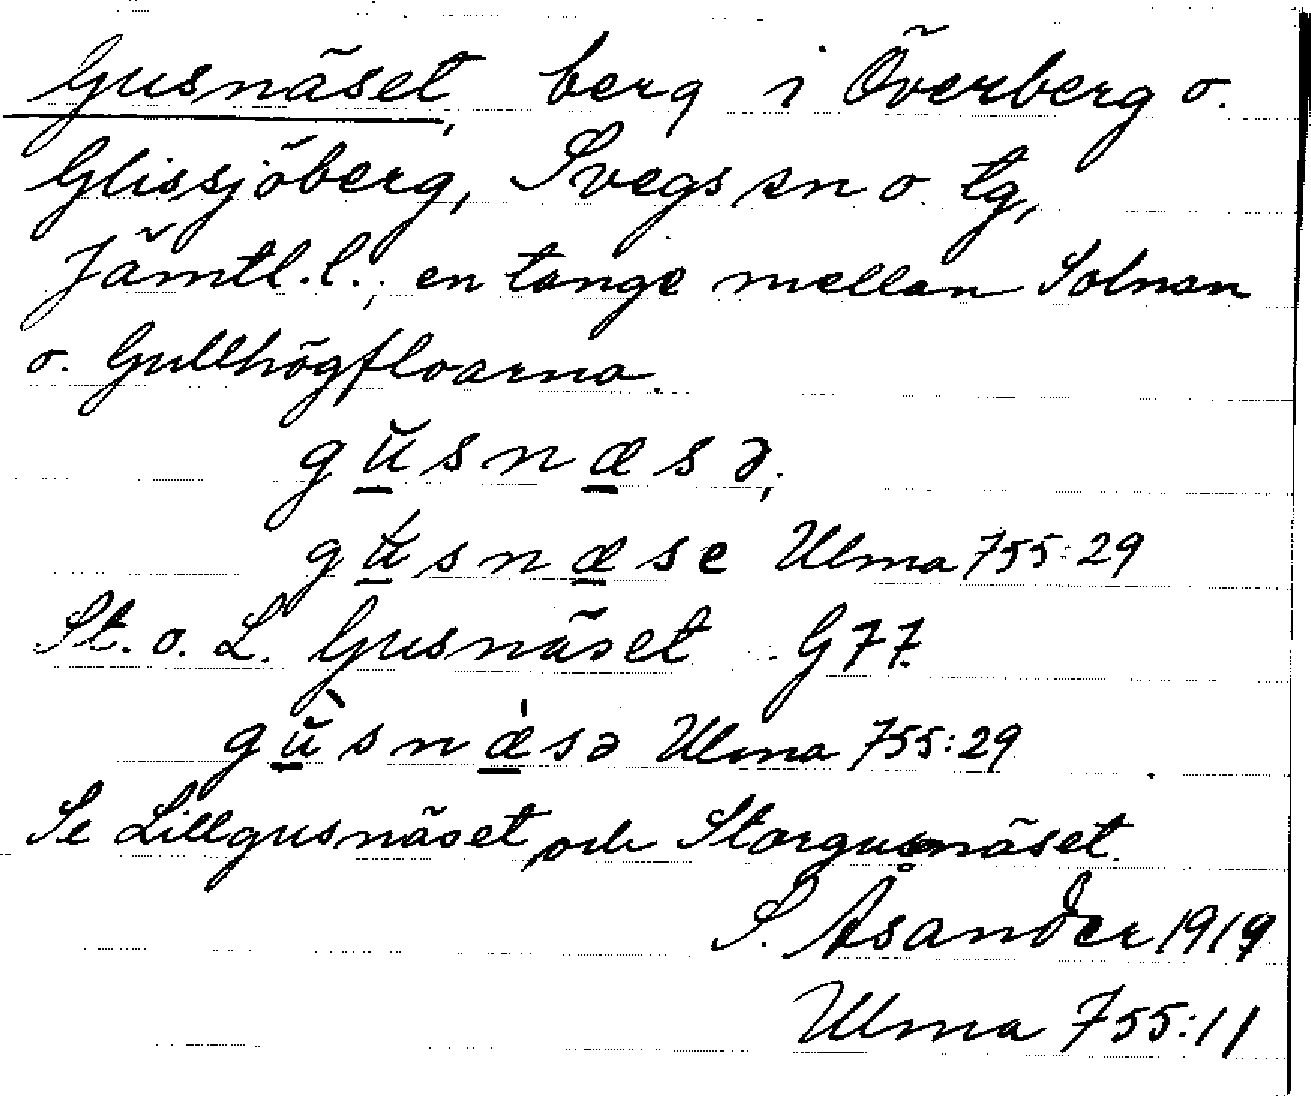 Gusnäset, berg i Överberg o.
Glissjöberg, Svegs sn o. tg,
Jämtl. l., en tange mellan Solnan
o. Gullhögfloarna.
gŭ̲snæ̲sə,
gŭ̲́snæ̲se Ulma 755:29
St. o. L. Gusnäset G 77.
gŭ̲̀snæ̲̍sə Ulma 755:29
Se Lillgusnäset och Storgusnäset.
S. Åsander 1919
Ulma 755:11